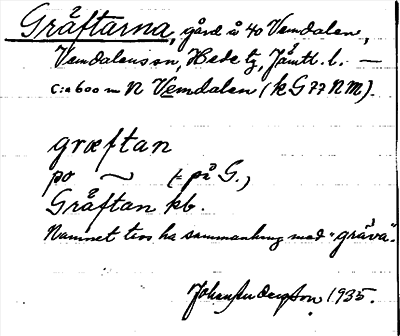 Gråftarna, gård å 40 Vemdalen,
Vemdalens sn, Hede tg, Jämtl. l. —
c:a 600 m N Vemdalen (k G 77 N M).
græftan
po ~ (t på G.,)
Gråftan kb.
Namnet tros ha sammanhang med "gräva".
Johan Anderson 1935.